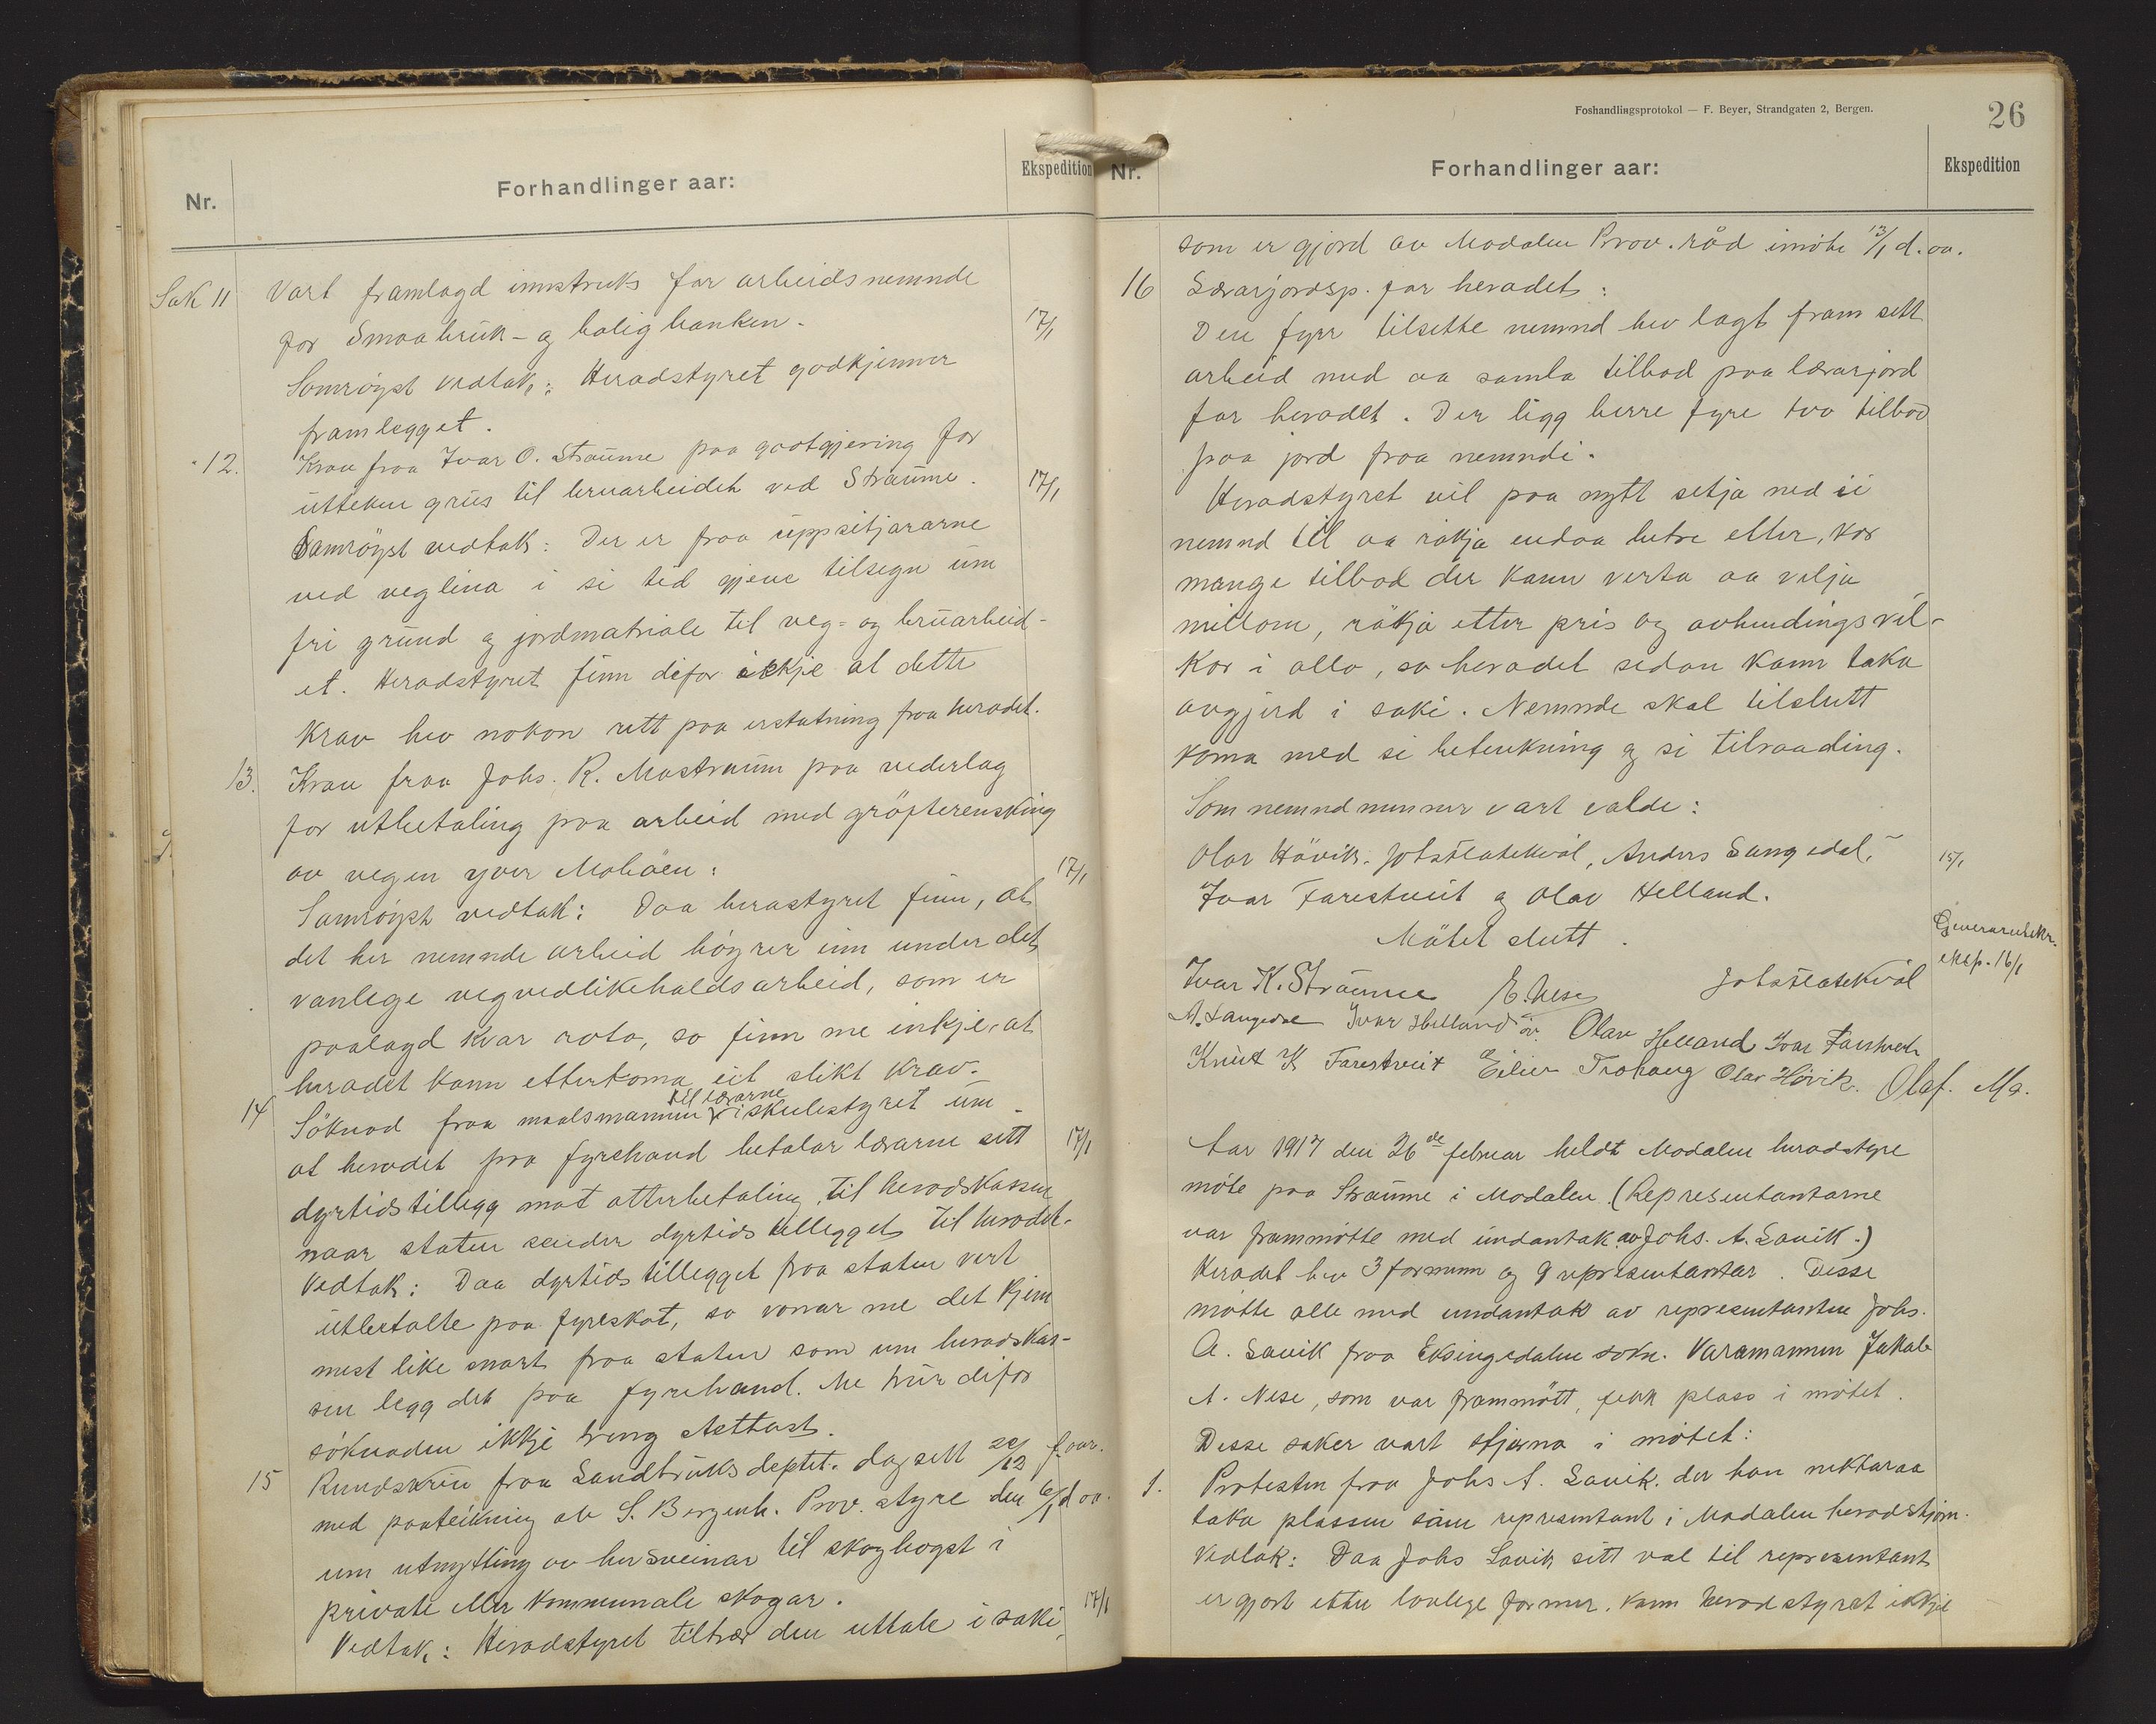 Nr.
Forhandlinger aar:
Ekspedition
Sak 11 Vart framlagd innstruks for arbeidsnemnde
for Smaabruk- og boligbanken.
17/1
Samröyst vedtak: Heradstyret godkjenner
framlegget.
"12. Krav fraa Ivar O. Straume paa godtgjering for
utteken grus til bruarbeidet ved Straume.
17/1
Samröyst vedtak: Der er fraa uppsitjararne
ved veglina i si tid gjeve tilsegn um
fri grund og jordmatriale til veg- og bruarbeid-
et. Heradstyret finn difor ikkje at dette
krav hev nokon rett paa erstatning fraa heradet.
13. Krav fraa Johs. R. Mostraum paa vederlag
for utbetaling paa arbeid med gröfterensking
av vegen yver Moböen:
17/1
Samröyst vedtak: Daa herastyret finn, at
det her nemnde arbeid höyrer inn under det
vanlege vegvedlikehaldsarbeid, som er
paalagd kvar rota, so finn me inkje at
heradet kann etterkoma eit slikt krav.
14 Söknad fraa maalsmannen til lærarne i skulestyret um
at heradet paa fyrehand betalar lærarne sitt
17/1
dyrtidstillegg mot atterbetaling til heradskassen
naar staten sender dyrtidstillegget til heradet.
Vedtak: Daa dyrtidstillegget fraa staten vert
utbetalte paa fyreskot, so vonar me det kjem
mest like snart fraa staten som um heradskas-
sen legg det paa fyrehand. Me trur difor
söknaden ikkje treng stettast.
15 Rundskriv fraa Landbruksdeptet. dagsett 20/12 f. aar.
med paateikning av S. Bergenh. Prov. styre den 6/1 d. aa.
um utnytting av hersveinar til skoghogst i
private eller kommunale skogar.
17/1
Vedtak: Heradstyret tiltrær den uttale i saki,
Foshandlingsprotokol — F. Beyer, Strandgaten 2, Bergen.
26
Nr.
Forhandlinger aar:
Ekspedition
som er gjord av Modalen Prov. råd i möte 13/1 d. aa.
16 Lærarjordsp. for heradet:
Den fyrr tilsette nemnd hev lagt fram sitt
arbeid med aa samla tilbod paa lærarjord
for heradet. Der ligg berre fyre tvo tilbod
paa jord fraa nemndi.
Heradstyret vil paa nytt setja ned ei
nemnd til aa rökja endaa betre etter, kor
mange tilbod der kann verta aa velja
millom, rökja etter pris og avhendingsvil-
kor i allo, so heradet sedan kann taka
avgjerd i saki. Nemnde skal tilslutt
koma med si betenkning og si tilraading.
Som nemndmenner vart valde:
Olav Hövik, Johs Teatekvål, Anders Langedal,
15/1
Ivar Farestveit og Olav Helland.
Mötet slutt.
eksp. 16/1
Ivar K. Straume E. Nese
A. Langedal Ivar Helland Olav Helland Ivar Farestveit
Knut K Farestveit Eiliv Trohaug Olav Hövik. Olaf. Mo.
Aar 1917 den 26de februar heldt Modalen heradstyre
möte paa Straume i Modalen. (Representantarne
var frammötte med undantak av Johs. A. Lavik.)
Heradet hev 3 formenn og 9 representantar. Desse
mötte alle med undantak av representanten Johs.
A. Lavik fraa Eksingedalen sokn. Varamannen Jakob
A. Nese, som var frammött, fekk plass i mötet.
Desse saker vart stjorna i mötet:
1. Protesten fraa Johs A. Lavik, der han nektar aa
taka plassen som representant i Modalen heradstjorn.
Vedtak: Daa Johs Lavik sitt val til representant
er gjort etter lovlege former, kann heradstyret ikkje